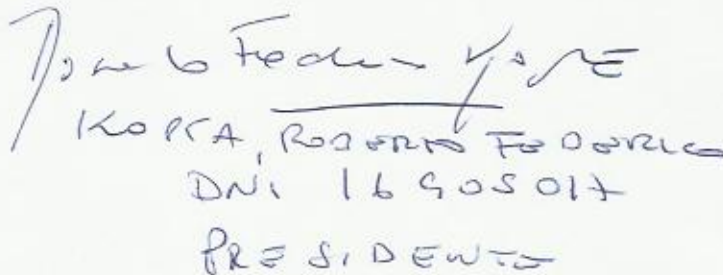 KOPSA, ROBERTO FEDERICO
DNI 16905017
PRESIDENTE